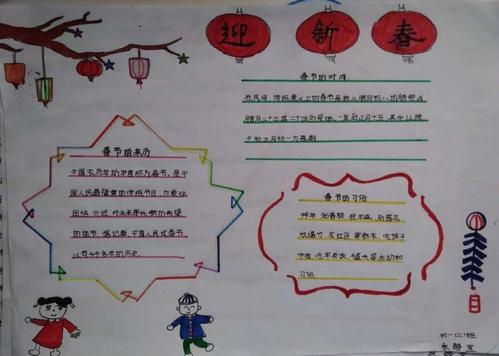 迎新春
春节的时间
在民间，传统意义上的春节是指从腊月初八的腊祭或
腊月二十三或二十四的祭灶，一直到正月十五，其中以除
夕和正月初一为高潮
春节的来历
中国农历年的岁首称为春节，是中
国人民最隆重的传统节日，
团结、兴旺，对未来寄托新的希望
的佳节。据记载，中国人民过春节
以有4千多年的历史
春节的习俗
拜年、贴春联、
放爆竹、发红包、穿新衣、吃饺子
守岁、吃年夜饭、
习俗
初一(二)班